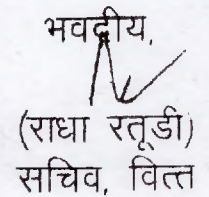 भवदीय,
(राधा रतूडी)
सचिव, वित्त